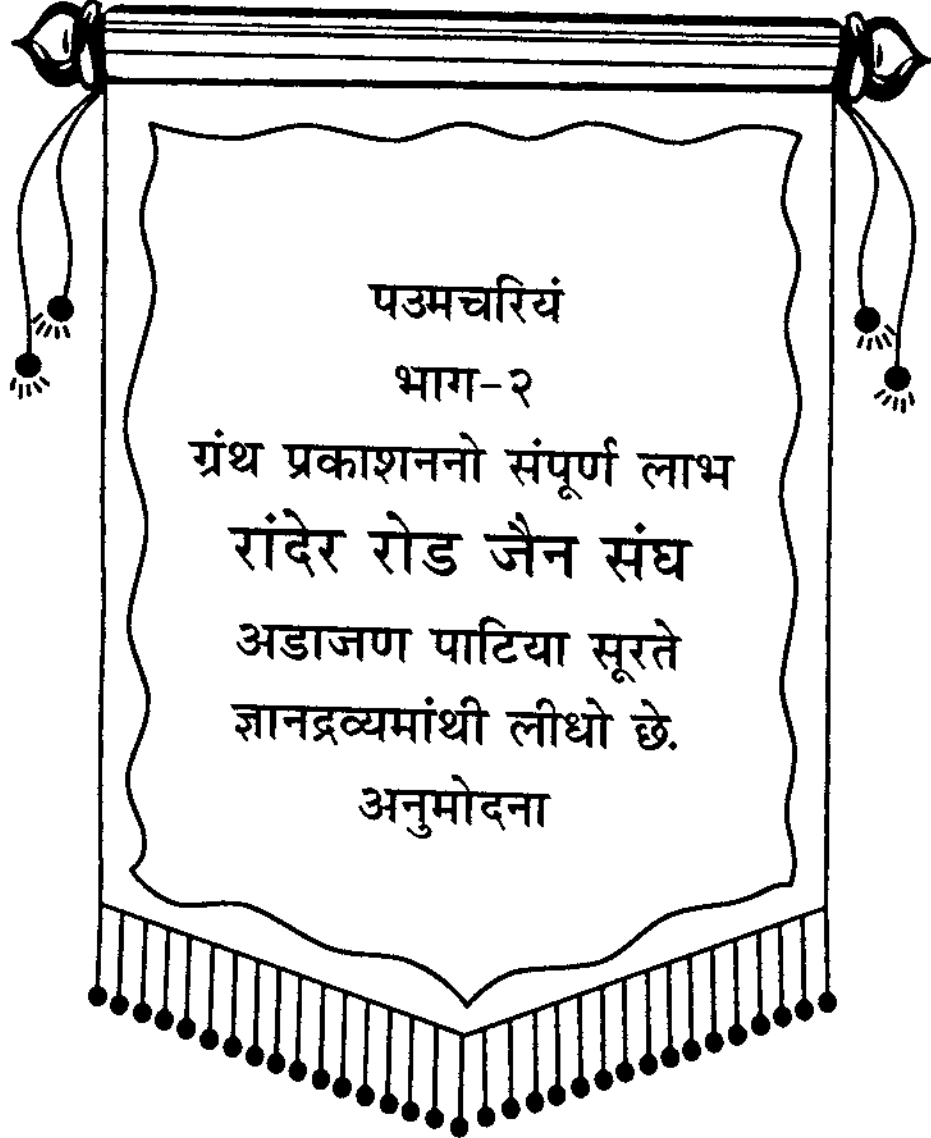 पउमचरियं
भाग-२
ग्रंथ प्रकाशननो संपूर्ण लाभ
रांदेर रोड जैन संघ
अडाजण पाटिया सूरते
ज्ञानद्रव्यमांथी लीधो छे.
अनुमोदना